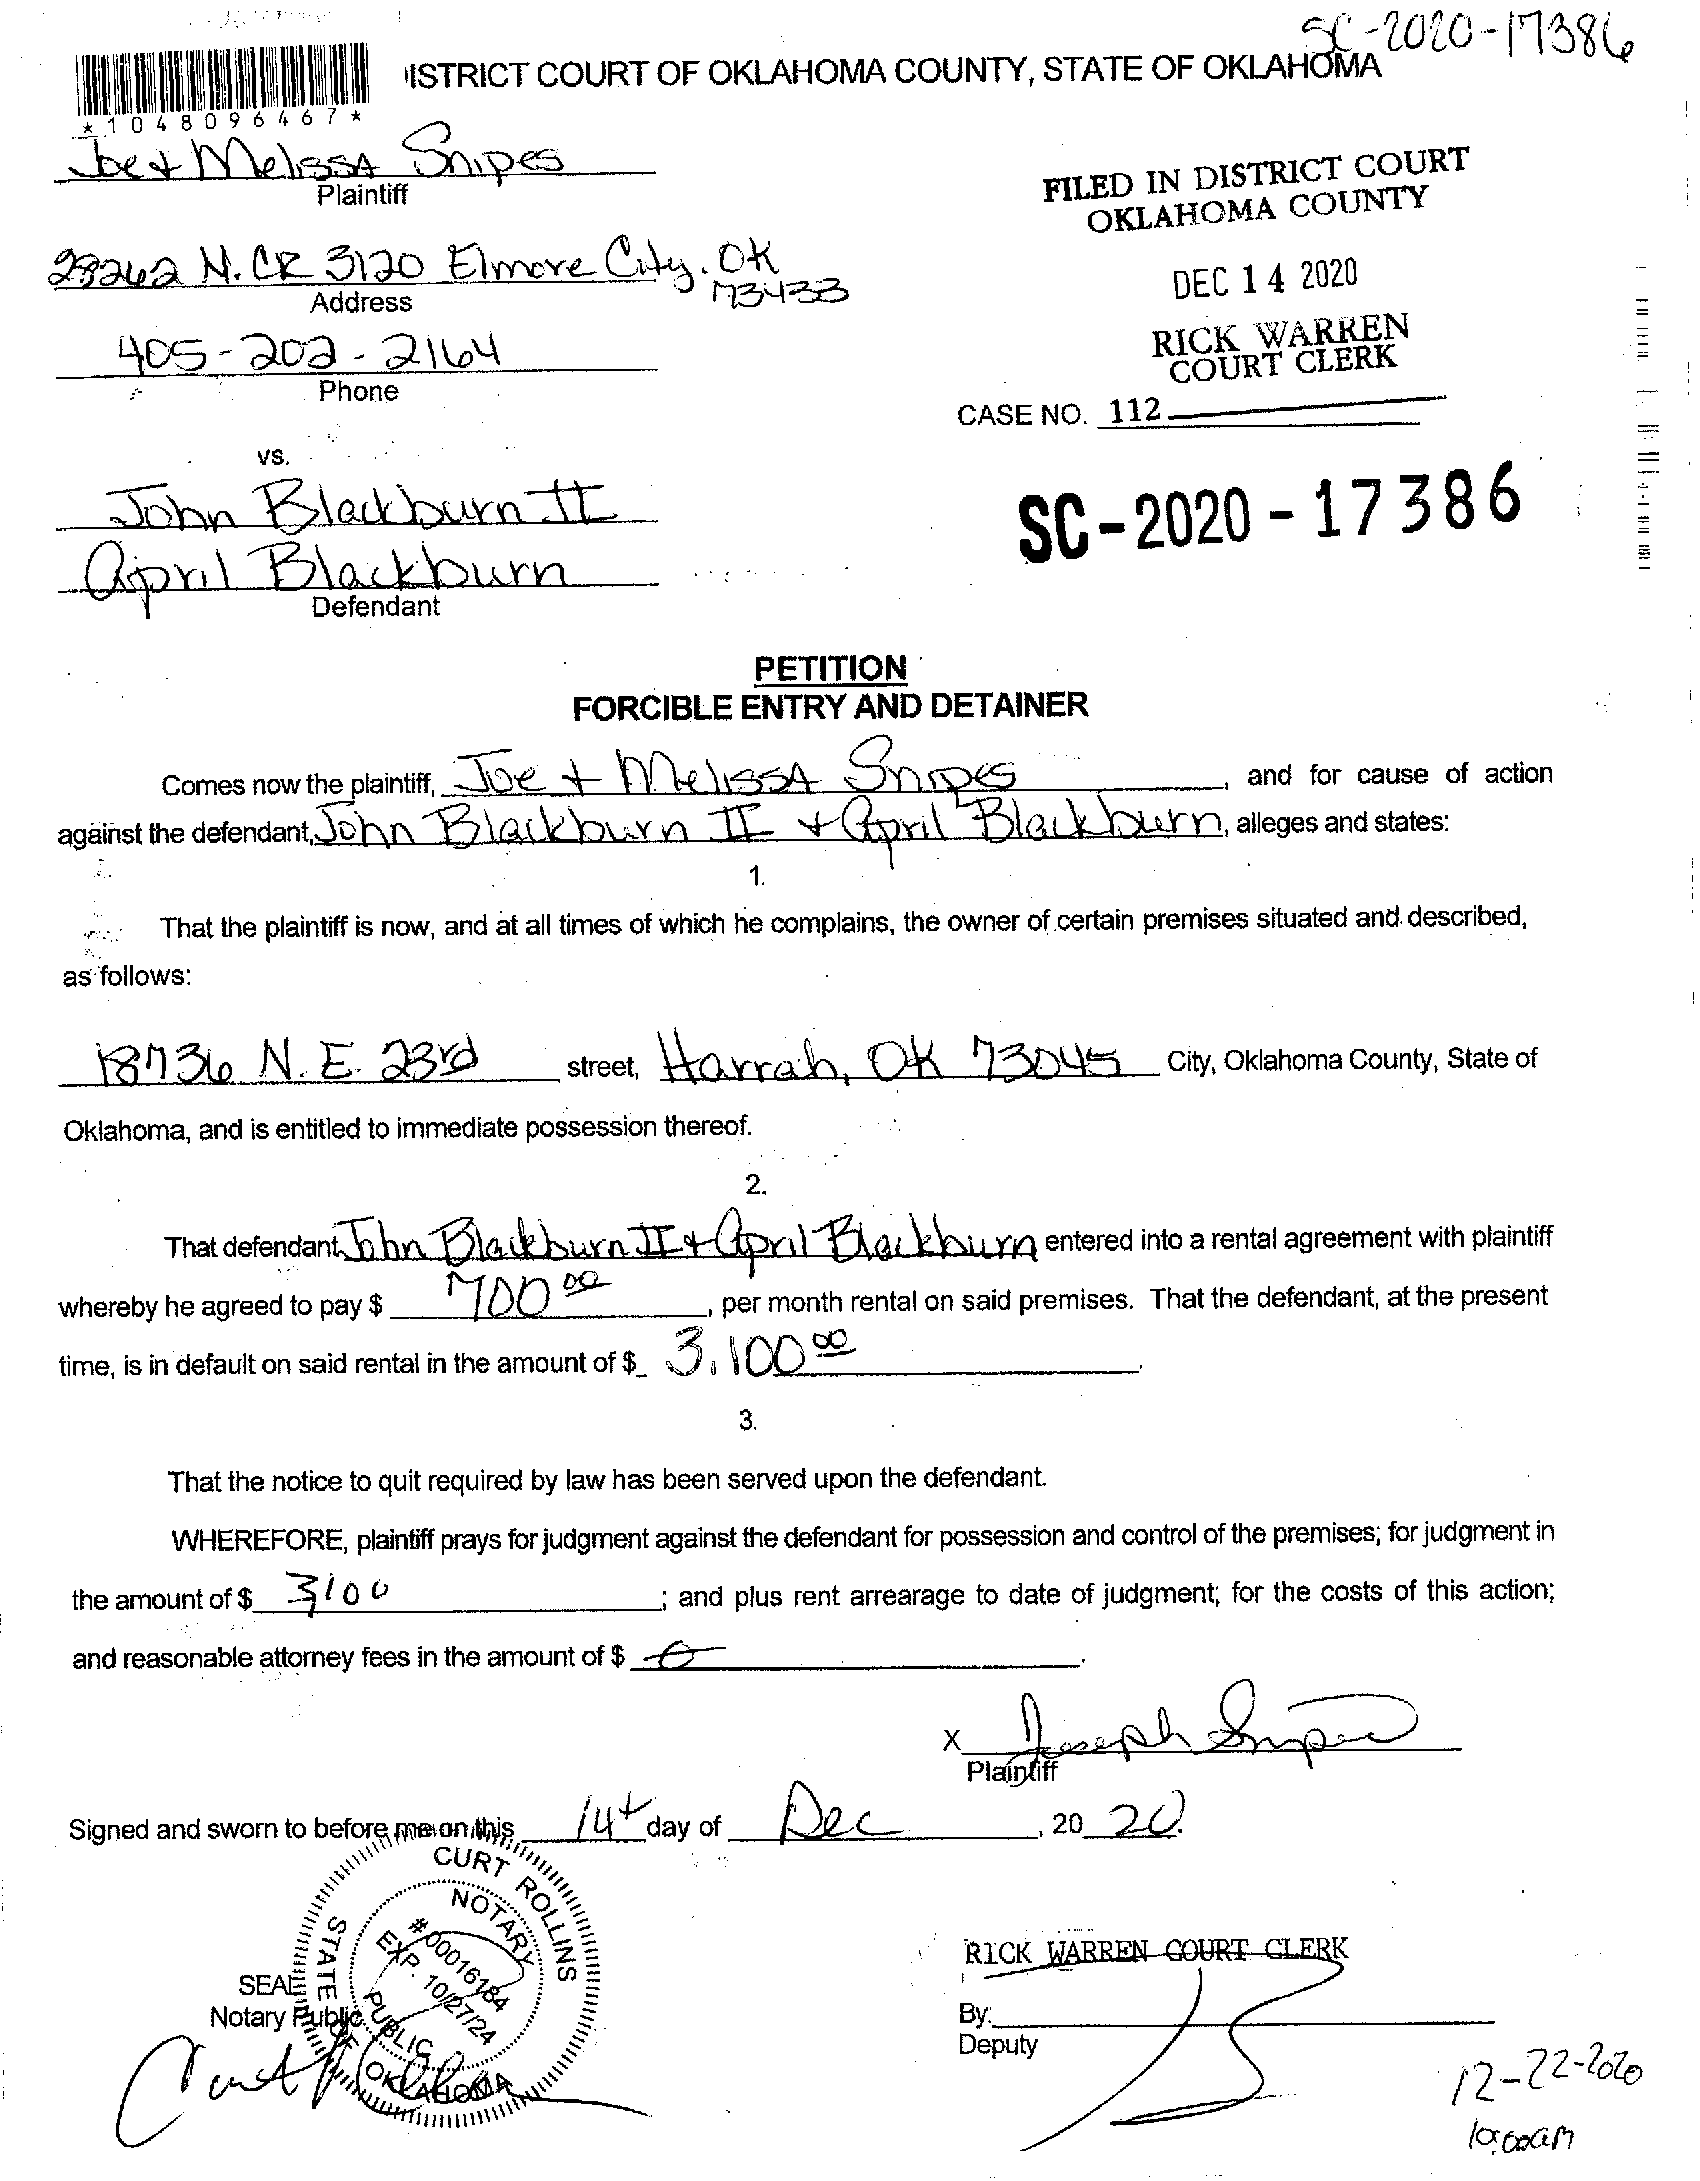 SC-2020-17386
ISTRICT COURT OF OKLAHOMA COUNTY, STATE OF OKLAHOMA
*1048096467*
Joe & Melissa Snipes
Plaintiff
FILED IN DISTRICT COURT
OKLAHOMA COUNTY
28262 N. CR 3120 Elmore City. OK
73433
Address
DEC 14 2020
405-202-2164
Phone
RICK WARREN
COURT CLERK
CASE NO. 112
vs.
John Blackburn II
April Blackburn
Defendant
SC-2020-17386
PETITION
FORCIBLE ENTRY AND DETAINER
Comes now the plaintiff, Joe + Melissa Snipes, and for cause of action
against the defendant, John Blackburn II + April Blackburn, alleges and states:
1.
That the plaintiff is now, and at all times of which he complains, the owner of certain premises situated and described,
as follows:
18736 N.E. 23rd street, Harrah, OK 73045 City, Oklahoma County, State of
Oklahoma, and is entitled to immediate possession thereof.
2.
That defendant, John Blackburn II + April Blackburn entered into a rental agreement with plaintiff
whereby he agreed to pay $ 700 00, per month rental on said premises. That the defendant, at the present
time, is in default on said rental in the amount of $ 3,100 00.
3.
That the notice to quit required by law has been served upon the defendant.
WHEREFORE, plaintiff prays for judgment against the defendant for possession and control of the premises; for judgment in
the amount of $ 3100; and plus rent arrearage to date of judgment; for the costs of this action;
and reasonable attorney fees in the amount of $ 0.
X Joseph Snipes
Plaintiff
Signed and sworn to before me on this 14th day of Dec, 20 20.
CURT ROLLINS
NOTARY PUBLIC
# 00016184
EXP. 10/27/24
STATE OF OKLAHOMA
SEAL
Notary Public
Curt Rollins
RICK WARREN COURT CLERK
By:
Deputy
12-22-2020
10:00am